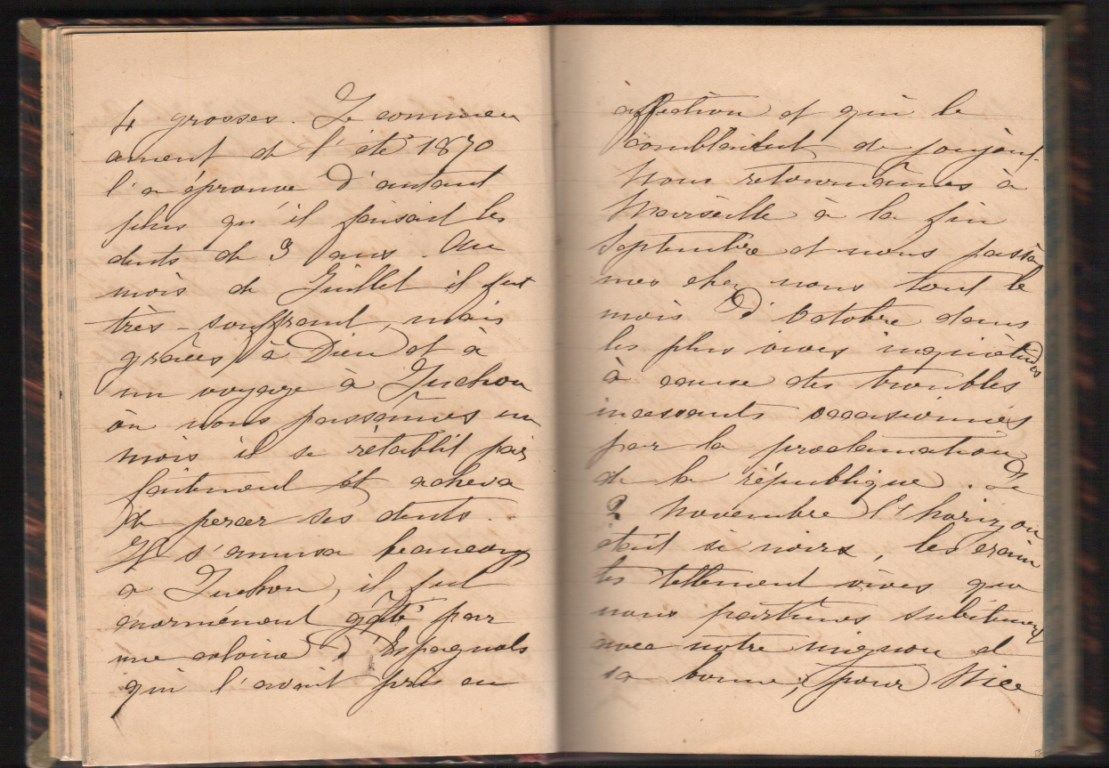 4 grosses. Le commen
cement de l'été 1870
l'a éprouvé d'autant
plus qu'il faisait les
dents de 3 ans. Au
mois de Juillet il fut
très-souffrant, mais
grâces à Dieu et à
un voyage à Luchon
où nous passâmes un
mois il se rétablit par
faitement et acheva
de percer ses dents.
Il s'amusa beaucoup
a Luchon, il fut
énormément gâté par
une colonie d'Espagnols
qui l'avait pris en
affection et qui le
comblaient de joujoux.
Nous retournâmes à
Marseille à la fin
Septembre et nous passâ
mes chez nous tout le
mois d'Octobre dans
les plus vives inquiétudes
à cause des troubles
incessants occasionnés
par la proclamation
de la république. Le
2 Novembre l'horizon
était si noir, les crain
tes tellement vives que
nous partîmes subitement
avec notre mignon et
sa bonne, pour Nice